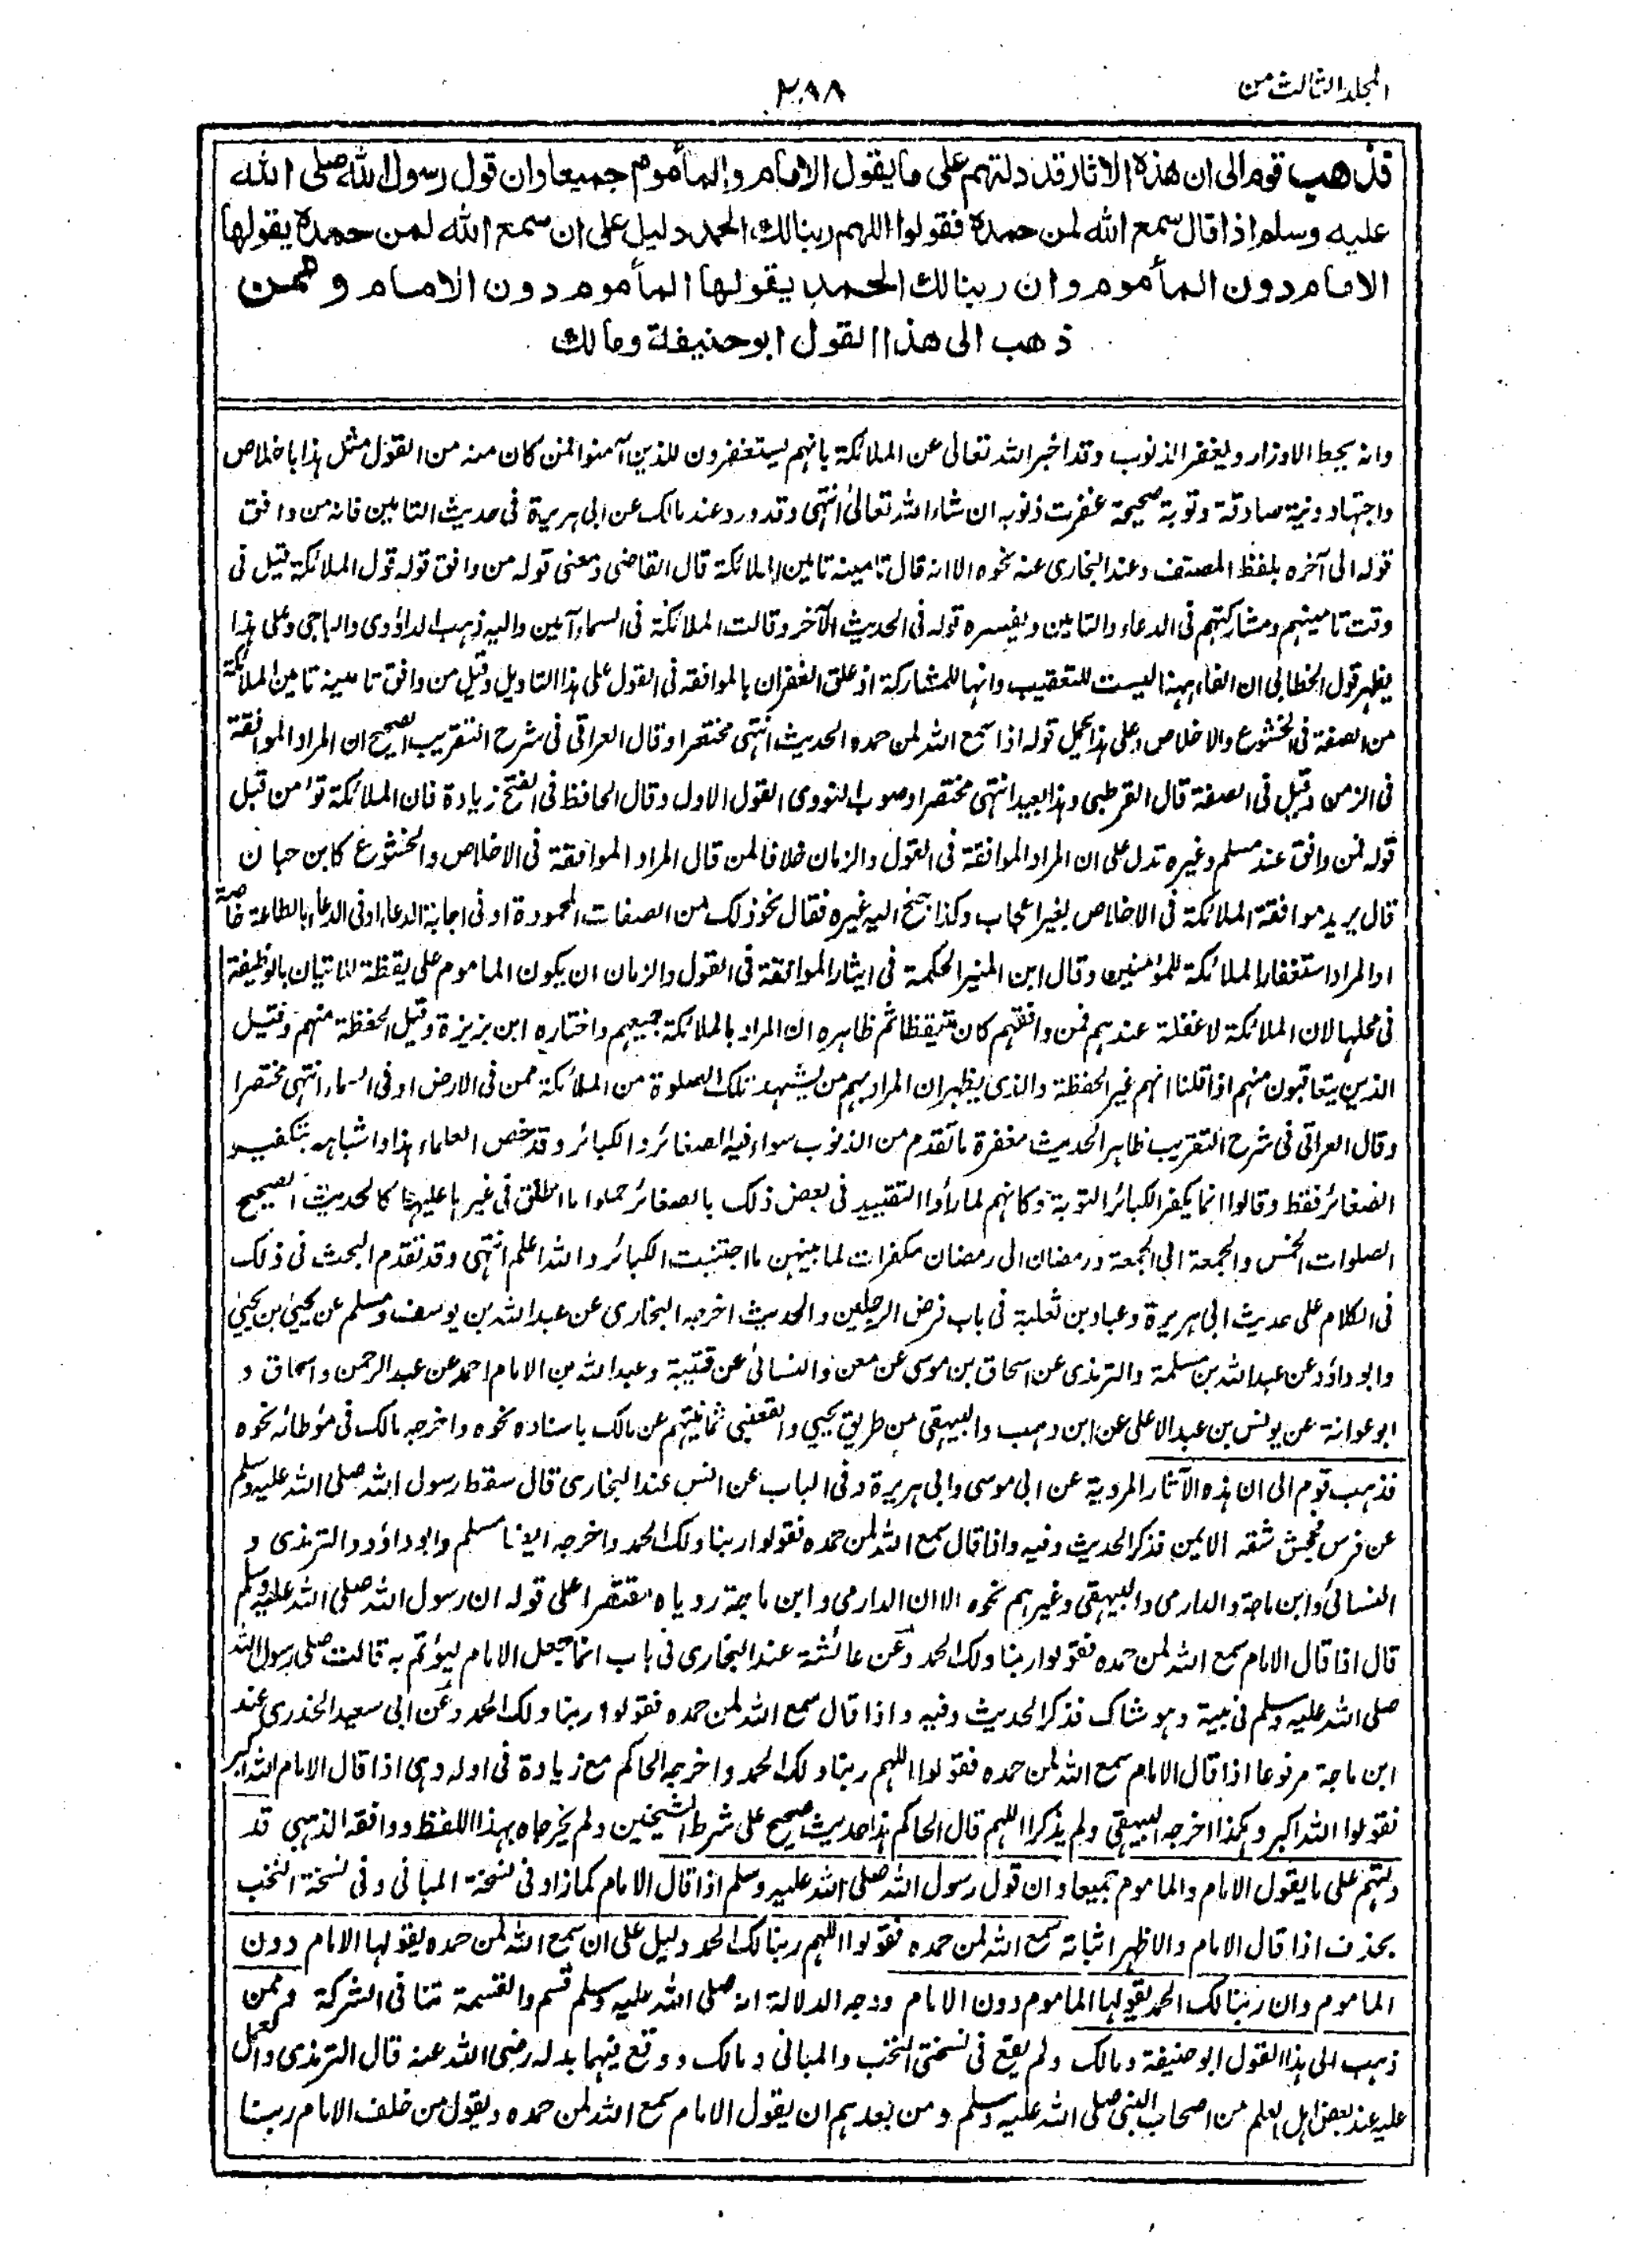 المجلد الثالث من
٢٨٨
فذهب قوم الى ان هذه الاثار قد دلتهم على ما يقول الامام والمأموم جميعا وان قول رسول الله صلى الله
عليه وسلم اذا قال سمع الله لمن حمده فقولوا اللهم ربنا لك الحمد دليل على ان سمع الله لمن حمده يقولها
الامام دون المأموم وان ربنا لك الحمد يقولها المأموم دون الامام وممن
ذهب الى هذا القول ابو حنيفة ومالك
وانه يحط الاوزار ويغفر الذنوب وقد اخبر الله تعالى عن الملائكة بانهم يستغفرون للذين آمنوا فمن كان منه من القول مثل هذا باخلاص
واجتهاد ونية صادقة وتوبة صحيحة غفرت ذنوبه ان شاء الله تعالىٰ انتهى وقد ورد عند مالك عن ابى هريرة فى حديث التامين فانه من وافق
قوله الى آخره بلفظ المصنف وعند البخارى عنه نحوه الا انه قال تامينه تامين الملائكة قال القاضى ومعنى قوله من وافق قوله قول الملائكة قيل فى
وقت تامينهم ومشاركتهم فى الدعاء والتامين ويفسره قوله فى الحديث الآخر وقالت الملائكة فى السماء آمين واليه ذهب الداؤدى والباجى وعلى هذا
يظهر قول الخطابى ان الفاء ههنا ليست للتعقيب وانها للمشاركة اذ علق الغفران بالموافقه فى القول على هذا التاويل وقيل من وافق تامينه تامين الملائكة
من الصفة فى الخشوع والاخلاص وعلى هذا يحمل قوله اذا سمع الله لمن حمده الحديث انتهى مختصرا وقال العراقى فى شرح التقريب الصحيح ان المراد الموافقة
فى الزمن وقيل فى الصفة قال القرطبى وهذا بعيد انتهى مختصرا وصوب النووى القول الاول وقال الحافظ فى الفتح زيادة فان الملائكة توٴمن قبل
قوله فمن وافق عند مسلم وغيره تدل على ان المراد الموافقة فى القول والزمان خلافا لمن قال المراد الموافقة فى الاخلاص والخشوع كابن حبان
قال يريد موافقة الملائكة فى الاخلاص بغير اعجاب وكذا جنح اليه غيره فقال نحو ذلك من الصفات المحمودة او فى اجابة الدعاء او فى الدعاء بالطاعة خاصة
او المراد استغفار الملائكة للمؤمنين وقال ابن المنير الحكمة فى ايثار الموافقة فى القول والزمان ان يكون الماموم على يقظة للاتيان بالوظيفة
فى محلها لان الملائكة لا غفلة عندهم فمن وافقهم كان متيقظا ثم ظاهره ان المراد بالملائكة جميعهم واختاره ابن بزيزة وقيل الحفظة منهم وقيل
الذين يتعاقبون منهم اذا قلنا انهم غير الحفظة والذى يظهر ان المراد بهم من يشهد تلك الصلوة من الملائكة ممن فى الارض او فى السماء انتهى مختصرا
وقال العراقى فى شرح التقريب ظاهر الحديث مغفرة ما تقدم من الذنوب سواء فيه الصغائر والكبائر وقد خص العلماء هذا واشباهه بتكفير
الصغائر فقط وقالوا انما يكفر الكبائر التوبة وكانهم لما رأوا التقييد فى بعض ذلك بالصغائر حملوا ما اطلق فى غيرها عليها كالحديث الصحيح
الصلوات الخمس والجمعة الى الجمعة ورمضان الى رمضان مكفرات لما بينهن ما اجتنبت الكبائر والله اعلم انتهى وقد تقدم البحث فى ذلك
فى الكلام على حديث ابى هريرة وعباد بن ثعلبة فى باب فرض الرجلين والحديث اخرجه البخارى عن عبد الله بن يوسف ومسلم عن يحيىٰ بن يحيىٰ
وابو داؤد عن عبد الله بن مسلمة والترمذى عن اسحاق بن موسى عن معن والنسائى عن قتيبة وعبد الله بن الامام احمد عن عبد الرحمن واسحاق و
ابو عوانة عن يونس بن عبد الاعلى عن ابن وهب والبيهقى من طريق يحيى والقعنبى ثمانيتهم عن مالك باسناده نحوه واخرجه مالك فى مؤطائه نحوه
فذهب قوم الى ان هذه الآثار المروية عن ابى موسى وابى هريرة وفى الباب عن انس عند البخارى قال سقط رسول الله صلى الله عليه وسلم
عن فرس فجحش شقه الايمن فذكر الحديث وفيه واذا قال سمع الله لمن حمده فقولوا ربنا ولك الحمد واخرجه ايضا مسلم وابو داؤد والترمذى و
النسائى وابن ماجة والدارمى والبيهقى وغيرهم نحوه الا ان الدارمى وابن ماجة روياه مقتصرا على قوله ان رسول الله صلى الله عليه وسلم
قال اذا قال الامام سمع الله لمن حمده فقولوا ربنا ولك الحمد وعن عائشة عند البخارى فى باب انما جعل الامام ليؤتم به قالت صلى رسول الله
صلى الله عليه وسلم فى بيته وهو شاك فذكر الحديث وفيه واذا قال سمع الله لمن حمده فقولوا ربنا ولك الحمد وعن ابى سعيد الخدرى عند
ابن ماجة مرفوعا اذا قال الامام سمع الله لمن حمده فقولوا اللهم ربنا ولك الحمد واخرجه الحاكم مع زيادة فى اوله وهى اذا قال الامام الله اكبر
فقولوا الله اكبر وهكذا اخرجه البيهقى ولم يذكر اللهم قال الحاكم هذا حديث صحيح على شرط الشيخين ولم يخرجاه بهذا اللفظ ووافقه الذهبى قد
دلتهم على ما يقول الامام والماموم جميعا وان قول رسول الله صلى الله عليه وسلم اذا قال الامام كما زاد فى نسخة المبانى وفى نسخة النخب
بحذف اذا قال الامام والاظهر اثباته سمع الله لمن حمده فقولوا اللهم ربنا لك الحمد دليل على ان سمع الله لمن حمده يقولها الامام دون
الماموم وان ربنا لك الحمد يقولها الماموم دون الامام ووجه الدلالة انه صلى الله عليه وسلم قسم والقسمة تنافى الشركة وممن
ذهب الى هذا القول ابو حنيفة ومالك ولم يقع فى نسختى النخب والمبانى ومالك ووقع فيهما بدله رضى الله عنه قال الترمذى والعمل
عليه عند بعض اهل العلم من اصحاب النبى صلى الله عليه وسلم ومن بعدهم ان يقول الامام سمع الله لمن حمده ويقول من خلف الامام ربنا